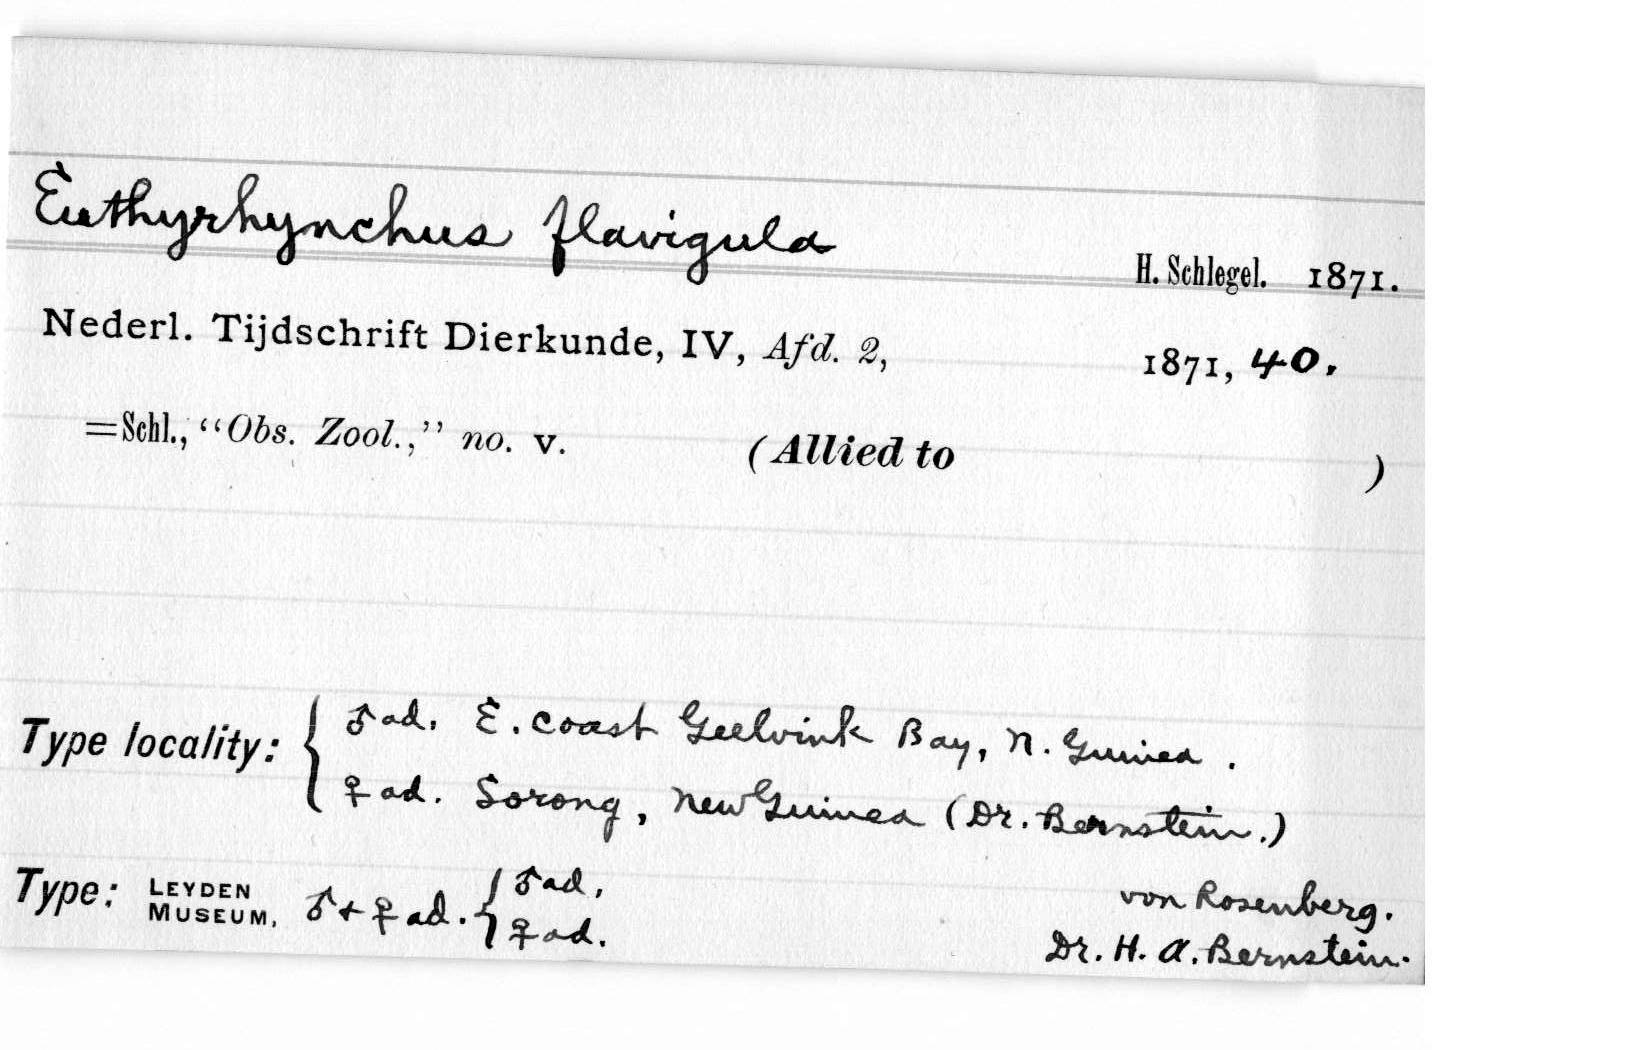 Euthyrhynchus flavigula
H. Schlegel. 1871.
Nederl. Tijdschrift Dierkunde, IV, Afd. 2, 1871, 40.
=Schl., “Obs. Zool.,” no. v. (Allied to )
Type locality: { ♂ ad. E. coast Geelvink Bay, N. Guinea.
♀ ad. Sorong, New Guinea (Dr. Bernstein.)
Type: LEYDEN MUSEUM, ♂ + ♀ ad. { ♂ ad, von Rosenberg.
♀ ad. Dr. H. A. Bernstein.